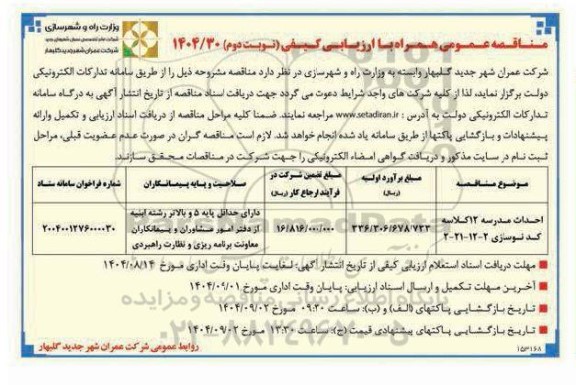 وزارت راه و شهرسازی
شرکت عمران شهر جدید گلبهار
مناقصه عمومی همراه با ارزیابی کیفی (نوبت دوم) ۱۴۰۴/۳۰
شرکت عمران شهر جدید گلبهار وابسته به وزارت راه و شهرسازی در نظر دارد مناقصه مشروحه ذیل را از طریق سامانه تدارکات الکترونیکی
دولت برگزار نماید، لذا از کلیه شرکت های واجد شرایط دعوت می گردد جهت دریافت اسناد مناقصه از تاریخ انتشار آگهی به درگاه سامانه
تدارکات الکترونیکی دولت به آدرس : www.setadiran.ir مراجعه نمایند. ضمنا کلیه مراحل مناقصه از دریافت اسناد ارزیابی و تکمیل وارائه
پیشنهادات و بازگشایی پاکتها از طریق سامانه یاد شده انجام خواهد شد. لازم است مناقصه گران در صورت عدم عضویت قبلی، مراحل
ثبت نام در سایت مذکور و دریافت گواهی امضاء الکترونیکی را جهت شرکت در مناقصات محقق سازند.
موضوع مناقصه
مبلغ برآورد اولیه (ریال)
مبلغ تضمین شرکت در فرآیند ارجاع کار (ریال)
صلاحیت و پایه پیمانکاران
شماره فراخوان سامانه ستاد
احداث مدرسه ۱۲کلاسه
کد نوسازی ۲-۱۲-۲۱-۲
۳۳۶/۳۰۶/۶۷۸/۷۳۳
۱۶/۸۱۶/۰۰۰/۰۰۰
دارای حداقل پایه ۵ و بالاتر رشته ابنیه
از دفتر امور مشاوران و پیمانکاران
معاونت برنامه ریزی و نظارت راهبردی
۲۰۰۴۰۰۱۲۷۶۰۰۰۰۳۰
مهلت دریافت اسناد استعلام ارزیابی کیفی از تاریخ انتشار آگهی: لغایت پایان وقت اداری مورخ ۱۴۰۴/۰۸/۱۴
آخرین مهلت تکمیل و ارسال اسناد ارزیابی: پایان وقت اداری مورخ ۱۴۰۴/۰۹/۰۱
تاریخ بازگشایی پاکتهای (الف) و (ب): ساعت ۰۹:۳۰ مورخ ۱۴۰۴/۰۹/۰۲
تاریخ بازگشایی پاکتهای پیشنهادی قیمت (ج): ساعت ۱۳:۳۰ مورخ ۱۴۰۴/۰۹/۰۲
روابط عمومی شرکت عمران شهر جدید گلبهار
۱۵۳۱۶۸